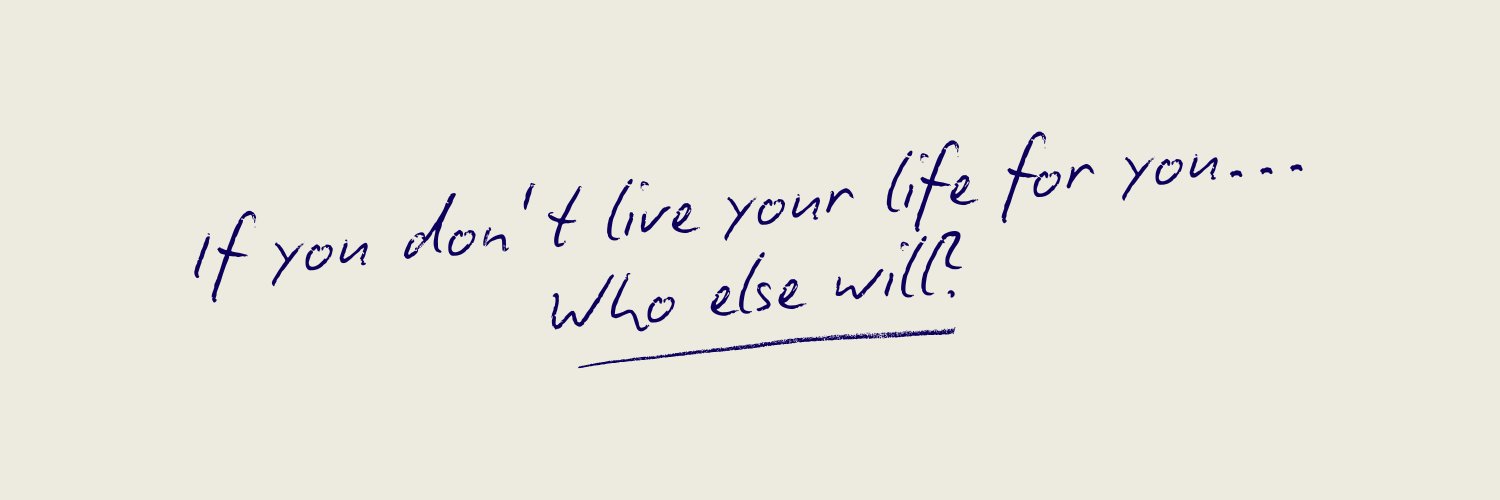 If you don't live your life for you...
Who else will?